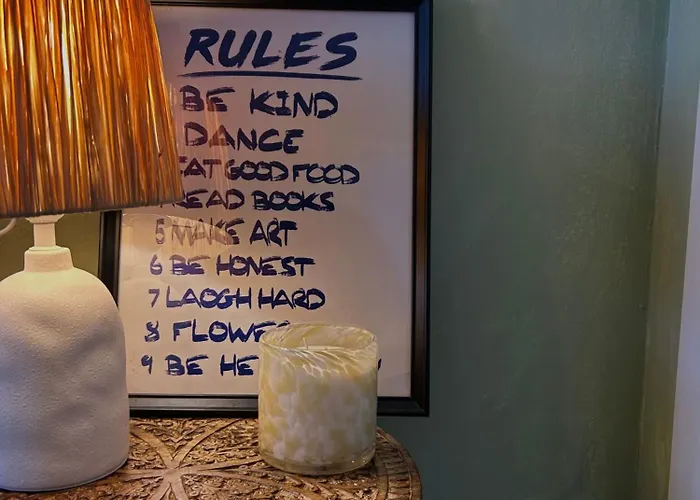 RULES
BE KIND
DANCE
EAT GOOD FOOD
READ BOOKS
5 MAKE ART
6 BE HONEST
7 LAOGH HARD
8 FLOWE
9 BE HE